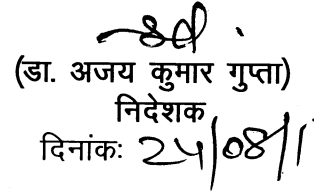 (डा. अजय कुमार गुप्ता)
निदेशक
दिनांकः 24/08/1